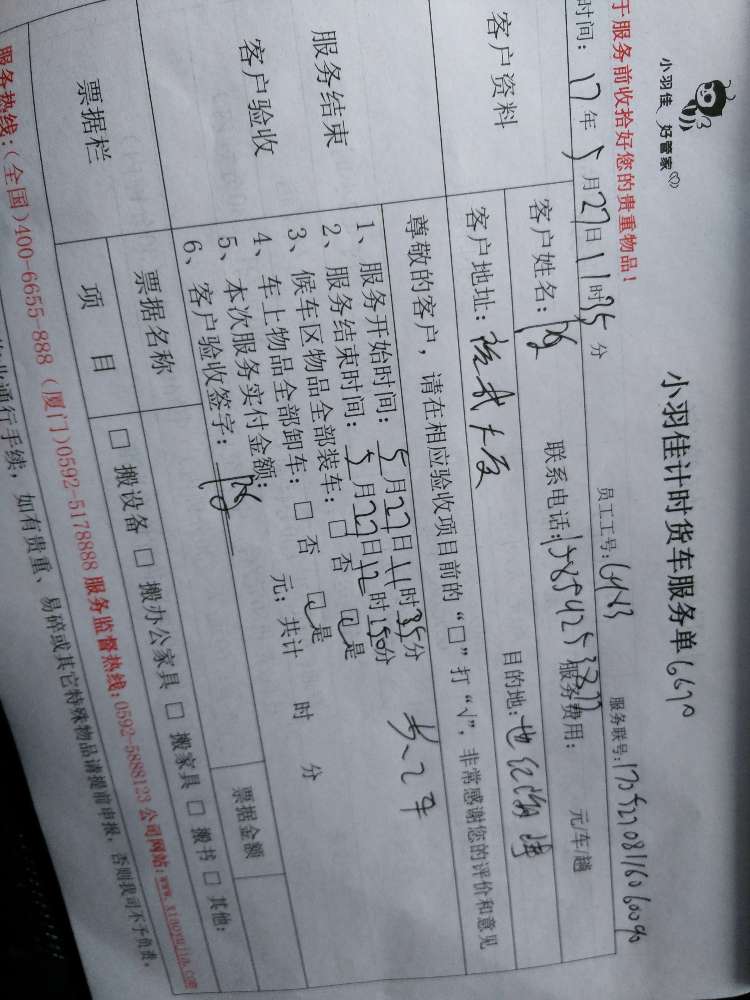 小羽佳 好管家
小羽佳计时货车服务单 6670
于服务前收拾好您的贵重物品！
员工工号：6483
服务联号：
时间：17年5月27日11时35分
客户资料
客户姓名：
联系电话：
服务费用： 元/车/趟
客户地址：
目的地：世纪
服务结束
客户验收
尊敬的客户，请在相应验收项目前的“□”打“√”，非常感谢您的评价和意见
1、服务开始时间：5月27日11时35分
2、服务结束时间：5月27日12时150分
3、候车区物品全部装车：□否 ☑是
4、车上物品全部卸车：□否 ☑是
5、本次服务实付金额： 元；共计 时 分
6、客户验收签字：
票据栏
票据名称
票据金额
项 目
□搬设备 □搬办公家具 □搬家具 □搬书 □其他：
服务热线：(全国)400-6655-888 (厦门)0592-5178888 服务监督热线：0592-5888123 公司网站：www.xiaoyujia.com
通行手续，如有贵重、易碎或其它特殊物品请提前申报，否则我司不予负责，